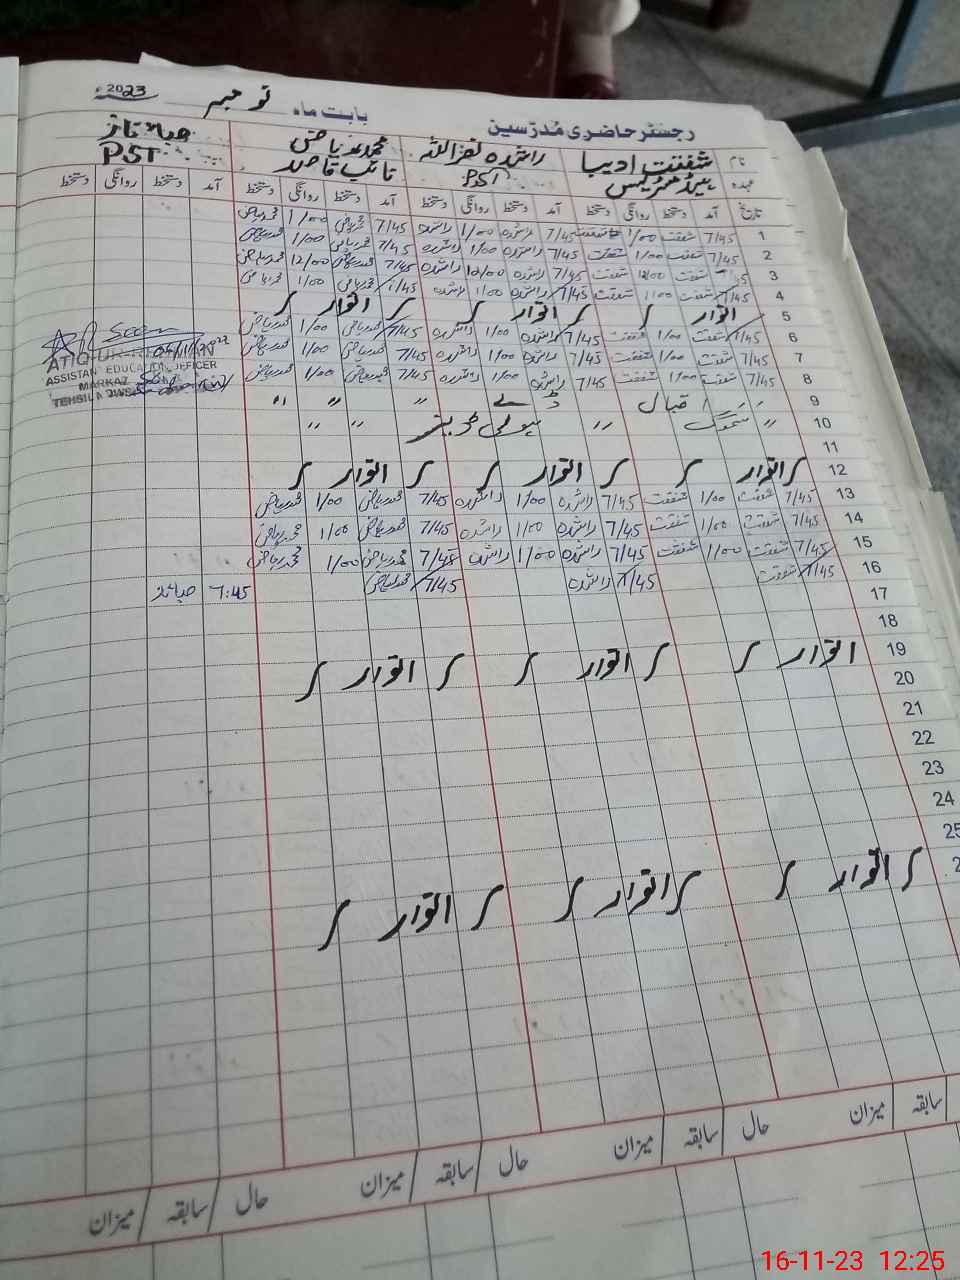 رجسٹر حاضری مدرسین بابت ماہ نومبر 2023ء
نام شفقت ادیبا راشدہ نصراللہ محمد ریاض صباء ناز
عہدہ ہیڈ مسٹریس PST نائب قاصد PST
تاریخ آمد دستخط روانگی دستخط آمد دستخط روانگی دستخط آمد دستخط روانگی دستخط آمد دستخط روانگی دستخط
1 7/45 شفقت 1/00 شفقت 7/45 راشدہ 1/00 راشدہ 7/45 محمد ریاض 1/00 محمد ریاض
2 7/45 شفقت 1/00 شفقت 7/45 راشدہ 1/00 راشدہ 7/45 محمد ریاض 1/00 محمد ریاض
3 شفقت 12/00 شفقت 7/45 راشدہ 12/00 راشدہ 7/45 محمد ریاض 12/00 محمد ریاض
4 7/45 شفقت 1/00 شفقت 7/45 راشدہ 1/00 راشدہ 7/45 محمد ریاض 1/00 محمد ریاض
5 اتوار اتوار اتوار
6 7/45 شفقت 1/00 شفقت 7/45 راشدہ 1/00 راشدہ 7/45 محمد ریاض 1/00 محمد ریاض
7 7/45 شفقت 1/00 شفقت 7/45 راشدہ 1/00 راشدہ 7/45 محمد ریاض 1/00 محمد ریاض
8 7/45 شفقت 1/00 شفقت 7/45 راشدہ 1/00 راشدہ 7/45 محمد ریاض 1/00 محمد ریاض
ASSISTANT EDUCATION OFFICER
MARKAZ
TEHSIL
9 〃 〃 اقبال ڈے 〃 〃 〃
10 〃 سموگ 〃 ہولی ڈیز 〃 〃
11
12 اتوار اتوار اتوار
13 7/45 شفقت 1/00 شفقت 7/45 راشدہ 1/00 راشدہ 7/45 محمد ریاض 1/00 محمد ریاض
14 7/45 شفقت 1/00 شفقت 7/45 راشدہ 1/00 راشدہ 7/45 محمد ریاض 1/00 محمد ریاض
15 7/45 شفقت 1/00 شفقت 7/45 راشدہ 1/00 راشدہ 7/45 محمد ریاض 1/00 محمد ریاض
16 7/45 شفقت 7/45 راشدہ 7/45 محمد ریاض 7:45
17
18
19 اتوار اتوار اتوار
20
21
22
23
24
25
اتوار اتوار اتوار
سابقہ میزان حال سابقہ میزان حال سابقہ میزان حال سابقہ میزان
16-11-23 12:25